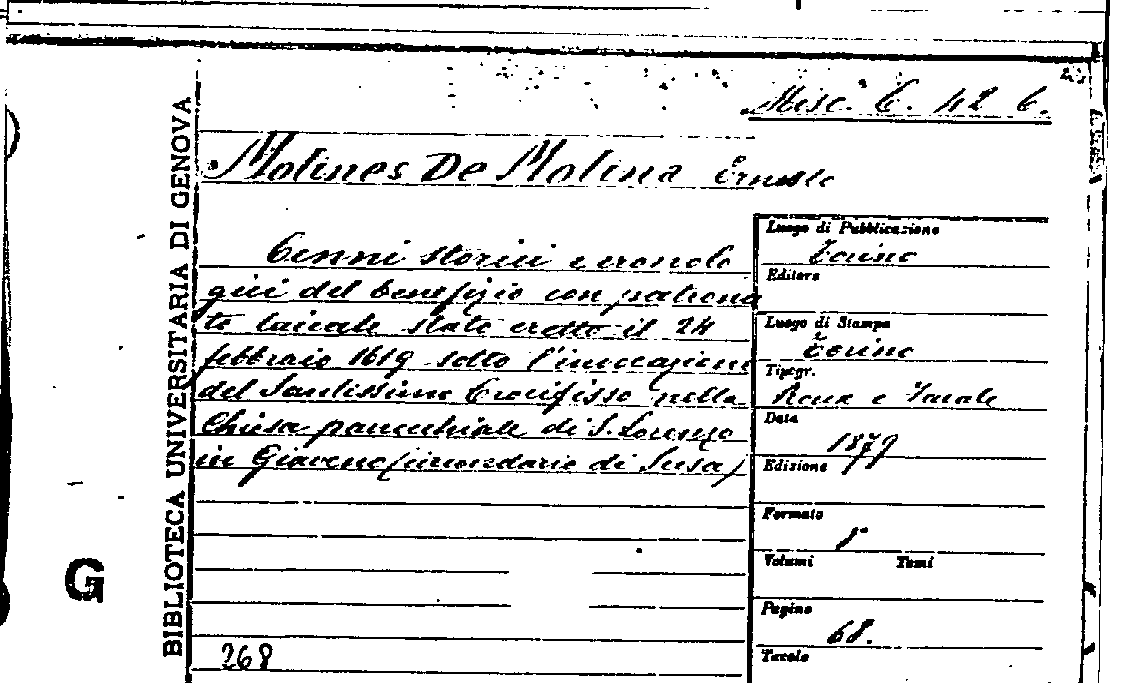 Misc. C. 42 6.
Molines De Molina Ernesto
Cenni storici e cronolo
gici del benefizio con patrona
to laicale stato eretto il 24
febbraio 1619 sotto l'invocazione
del Santissimo Crocifisso nella
Chiesa parrocchiale di S. Lorenzo
in Giaveno (circondario di Susa)
268
Luogo di Pubblicazione
Torino
Editore
Luogo di Stampa
Torino
Tipogr.
Roux e Favale
Data
1879
Edizione
Formato
8°
Volumi Tomi
Pagine
68.
Tavole
BIBLIOTECA UNIVERSITARIA DI GENOVA
G